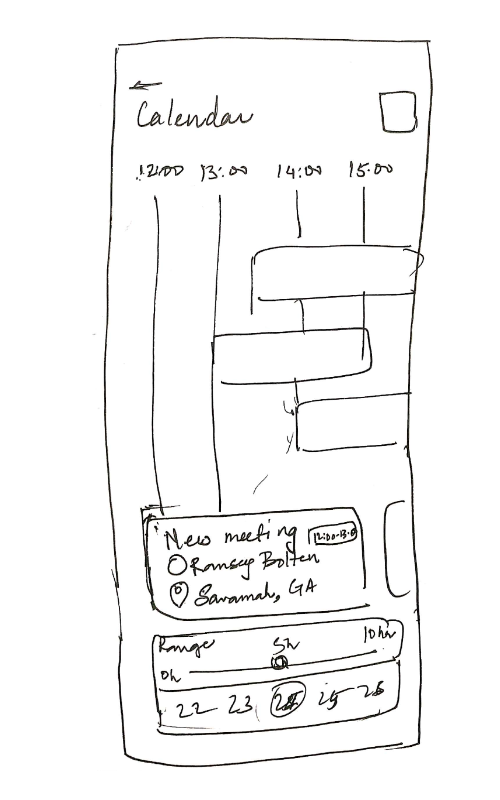 Calendar
12:00 13:00 14:00 15:00
New meeting 12:00-13:0
Ramsey Bolten
Savannah, GA
Range 5h 10hr
0h
22 23 24 25 26